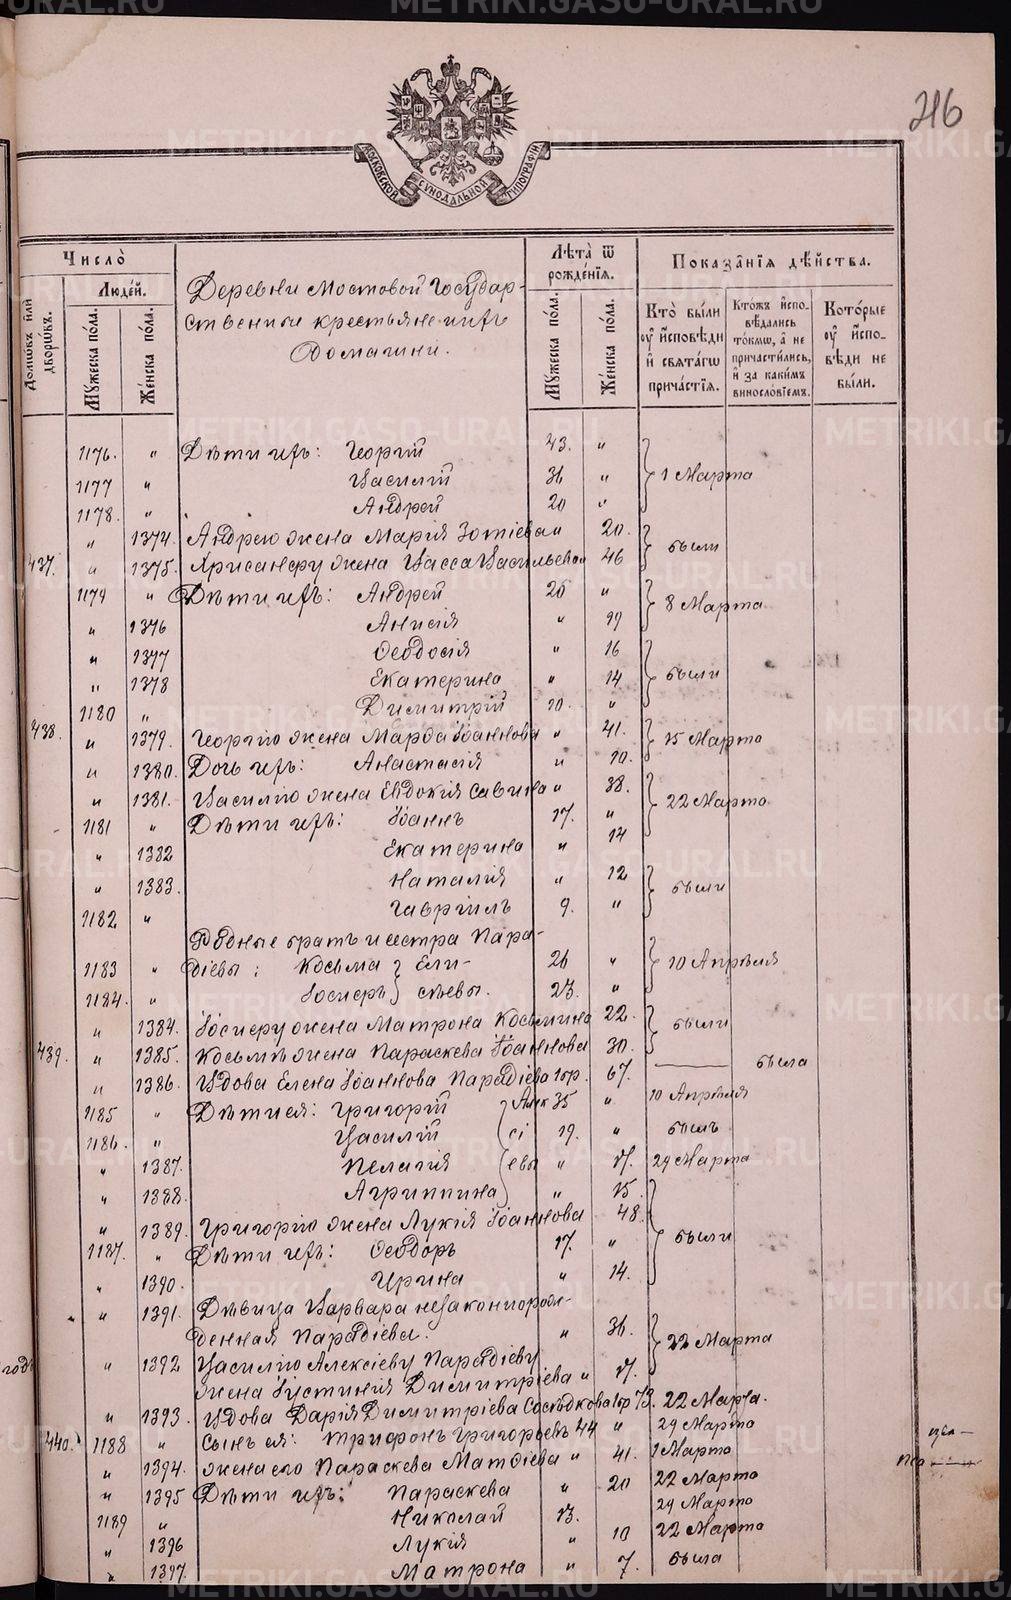 216
МОСКОВСКОЙ СѴНОДАЛЬНОЙ ТИПОГРАФІИ
Число̀
Людей.
Домѡвъ или дворѡвъ.
Мꙋжеска пола.
Женска пола.
Деревни Мостовой Государ-
ственные крестьяне и ихъ
Домашніе.
Лѣта̀ ѿ рожденїѧ.
Мꙋжеска пола.
Женска пола.
Показанїѧ дѣйства.
Кто̀ были оу исповѣди и свѧтагѡ причастїѧ.
Ктожъ исповѣдались токмѡ, а не причастились, и за какимъ винословїемъ.
Которые оу исповѣди не были.
1176. " Дѣти ихъ: Георгій 43. "
1177 " Василій 36 " 1 Марта
1178. " Андрей 20 "
" 1374. Андрею жена Марія Зотіева " 20.
437. " 1375. Хрисанфу жена Васса Васильева 46 были
1179 " Дѣти ихъ: Андрей 26 "
" 1376 Анисія " 19 8 Марта
" 1377 Ѳеодосія " 16
" 1378 Екатерина " 14 были
1180 " Димитрій 10. "
438. " 1379. Георгію жена Марѳа Іоаннова " 41. 15 Марта
" 1380. Дочь ихъ: Анастасія " 10.
" 1381. Василію жена Евдокія Савина " 38. 22 Марта
1181 " Дѣти ихъ: Іоаннъ 17. "
" 1382 Екатерина " 14
" 1383. Наталія " 12
1182 " Гавріилъ 9. " были
Родные братъ и сестра Пара-
1183 " діевы: Косьма } Ели- 26 " 10 Апрѣля
1184. " Іосифъ } сѣевы. 23. "
" 1384. Іосифу жена Матрона Косьмина 22. были
439. " 1385. Косьмѣ жена Параскева Іоаннова 30.
" 1386. Вдова Елена Іоаннова Парадіева 67. была
1185 " Дѣти ея: Григорій Алек 35 " 10 Апрѣля
1186. " Василій сі 19. " былъ
" 1387. Пелагія евы " 17. 29 Марта
" 1388. Агриппина " 15
" 1389. Григорію жена Лукія Іоаннова 48.
1187. " Дѣти ихъ: Ѳеодоръ 17. " были
" 1390. Ирина " 14.
" 1391. Дѣвица Варвара незаконнорож-
денная Парадіева. " 36. 22 Марта
" 1392 Василію Алексіеву Парадіеву
жена Іустинія Димитріева " 17.
" 1393. Вдова Дарія Димитріева 73. 22 Марта.
440. 1188 " Сынъ ея: Трифонъ Григорьевъ 44 " 29 Марта
" 1394. Жена его Параскева Матѳіева " 41. 1 Марта
" 1395 Дѣти ихъ: Параскева " 20 22 Марта
1189 " Николай 13. 29 Марта
" 1396 Лукія " 10 22 Марта
" 1397. Матрона " 7. была
METRIKI.GASO-URAL.RU